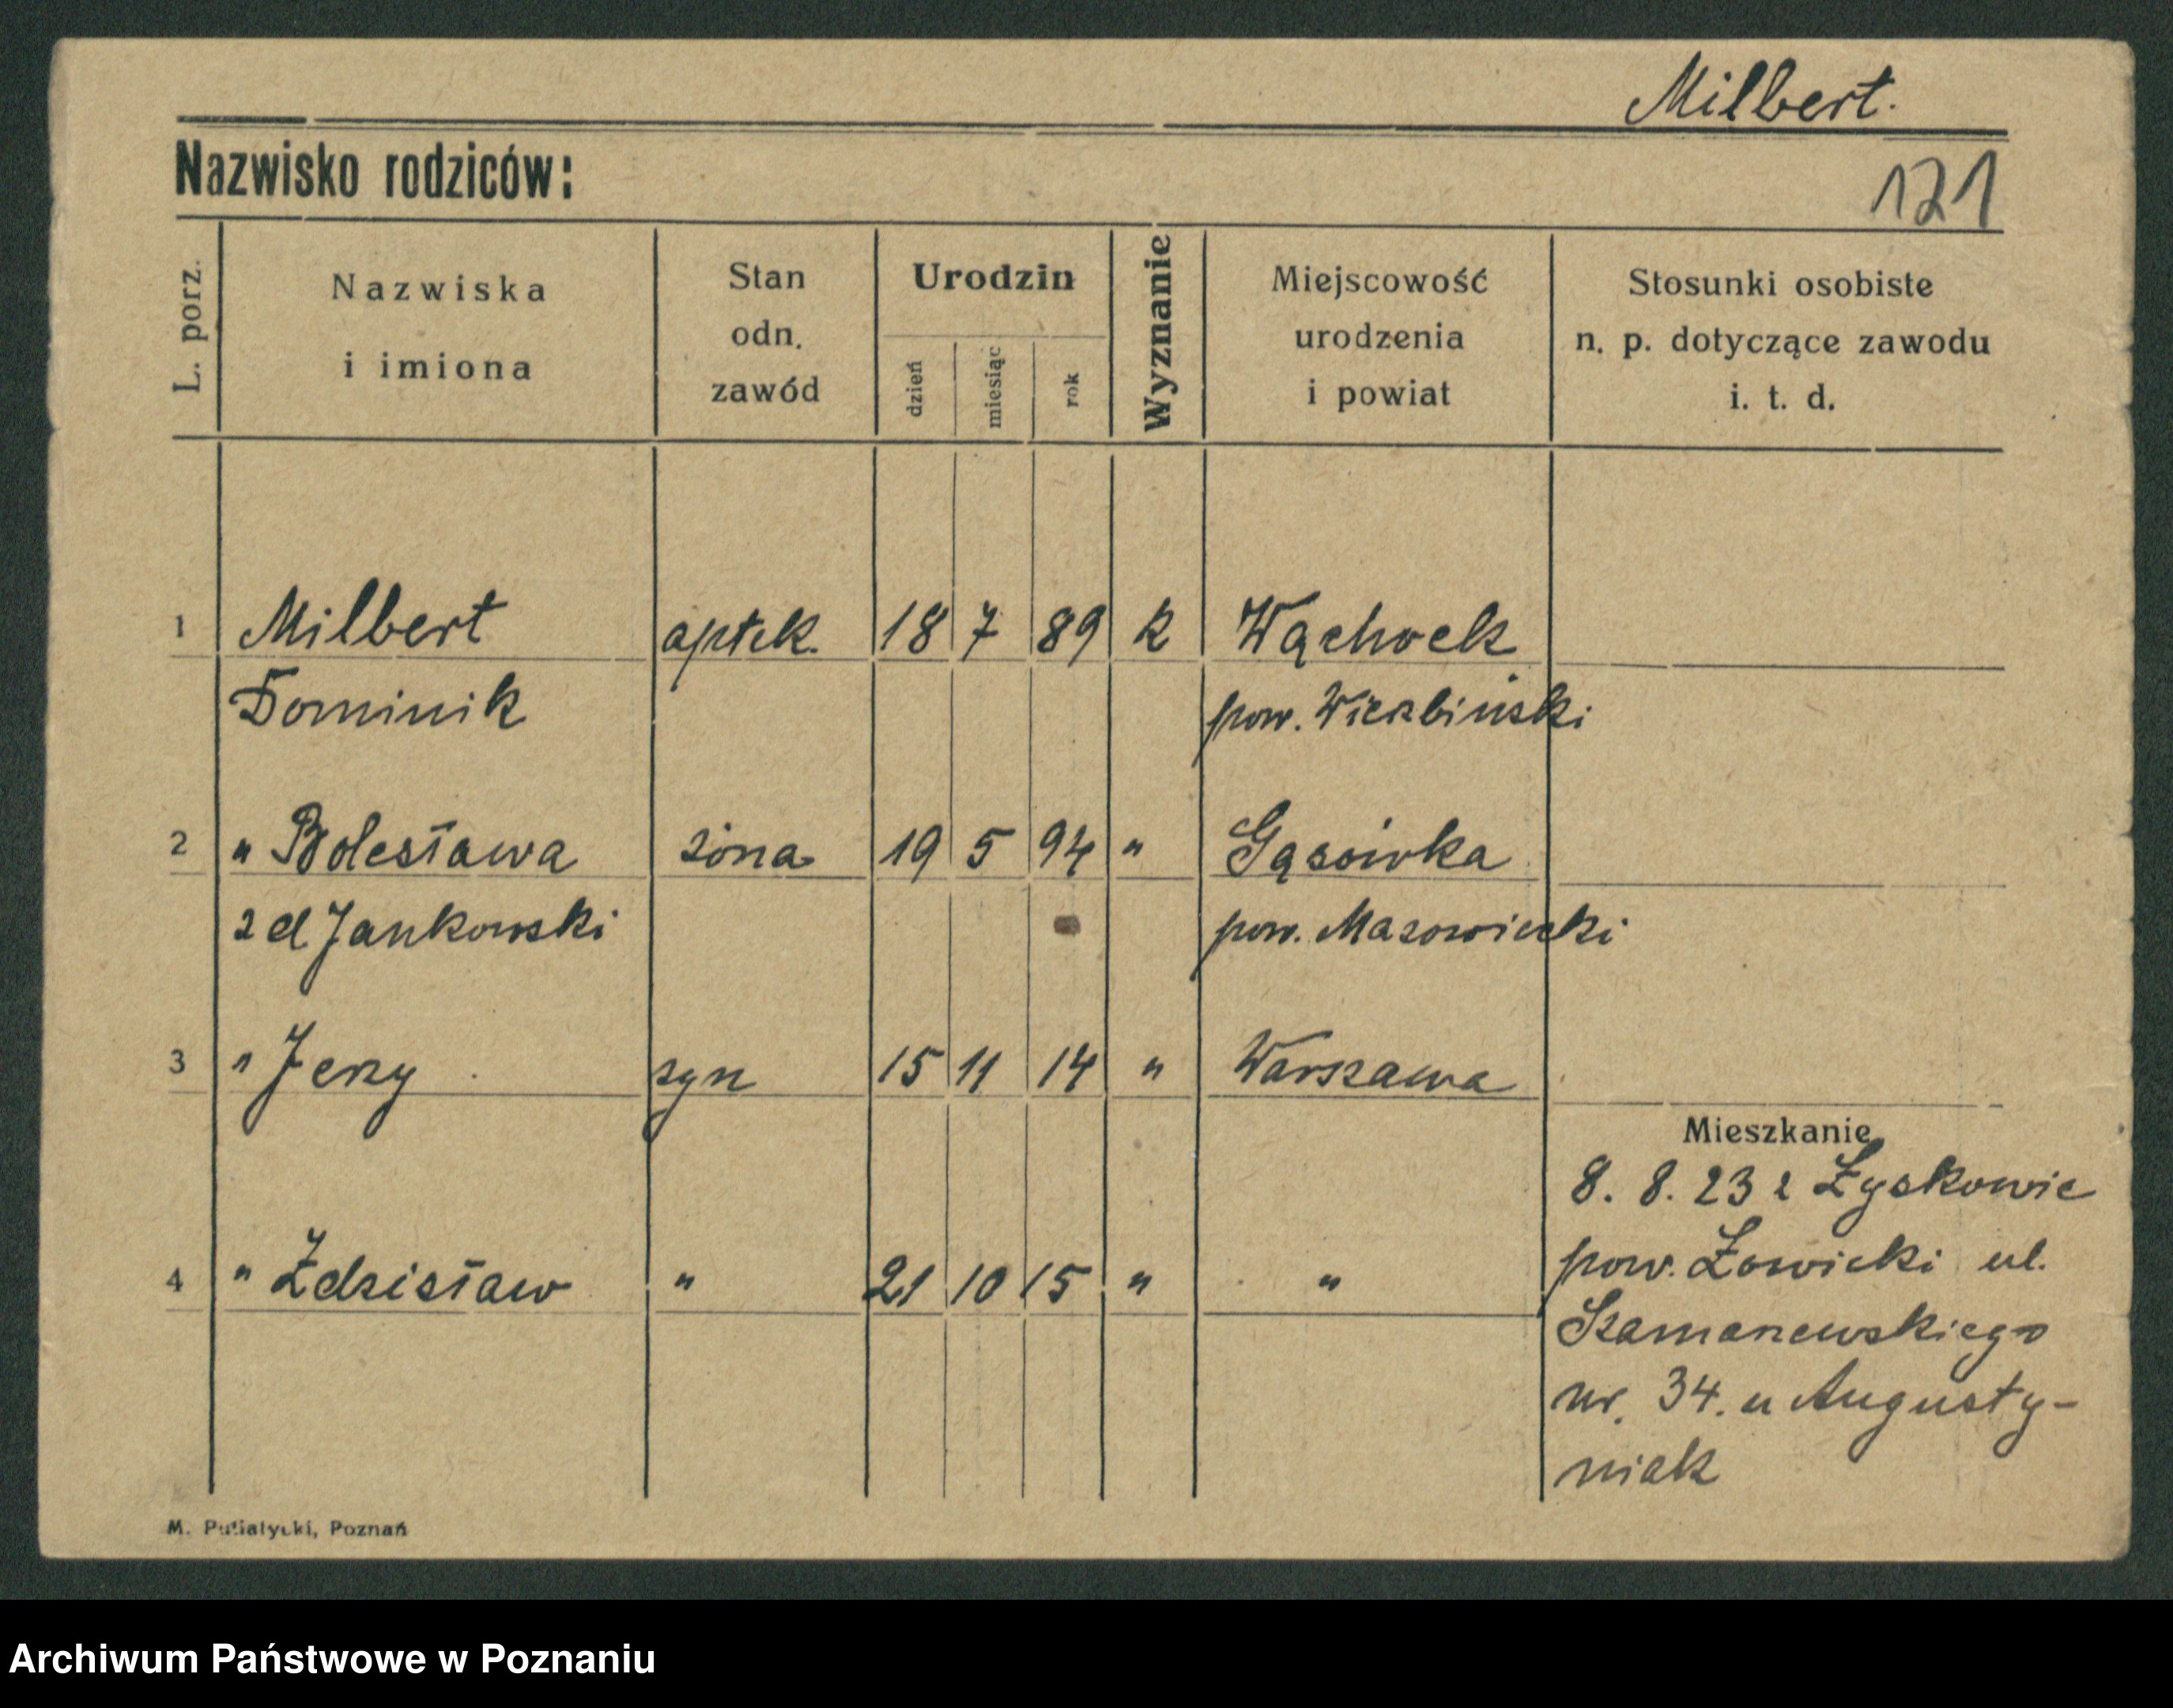 Milbert.
Nazwisko rodziców:
121
L. porz.
Nazwiska
i imiona
Stan
odn.
zawód
Urodzin
dzień
miesiąc
rok
Wyznanie
Miejscowość
urodzenia
i powiat
Stosunki osobiste
n. p. dotyczące zawodu
i. t. d.
1 Milbert aptek. 18 7 89 k Wąchock
Dominik pow. Wierzbiński
2 " Bolesława żona 19 5 94 " Gąsówka
z d Jankowski pow. Mazowiecki
3 " Jerzy syn 15 11 14 " Warszawa
Mieszkanie
8. 8. 23 z Łyskowic
pow. Łowicki ul.
4 " Zdzisław " 21 10 15 " "
Szamarzewskiego
nr. 34. u Augusty-
niak
M. Putiatycki, Poznań
Archiwum Państwowe w Poznaniu